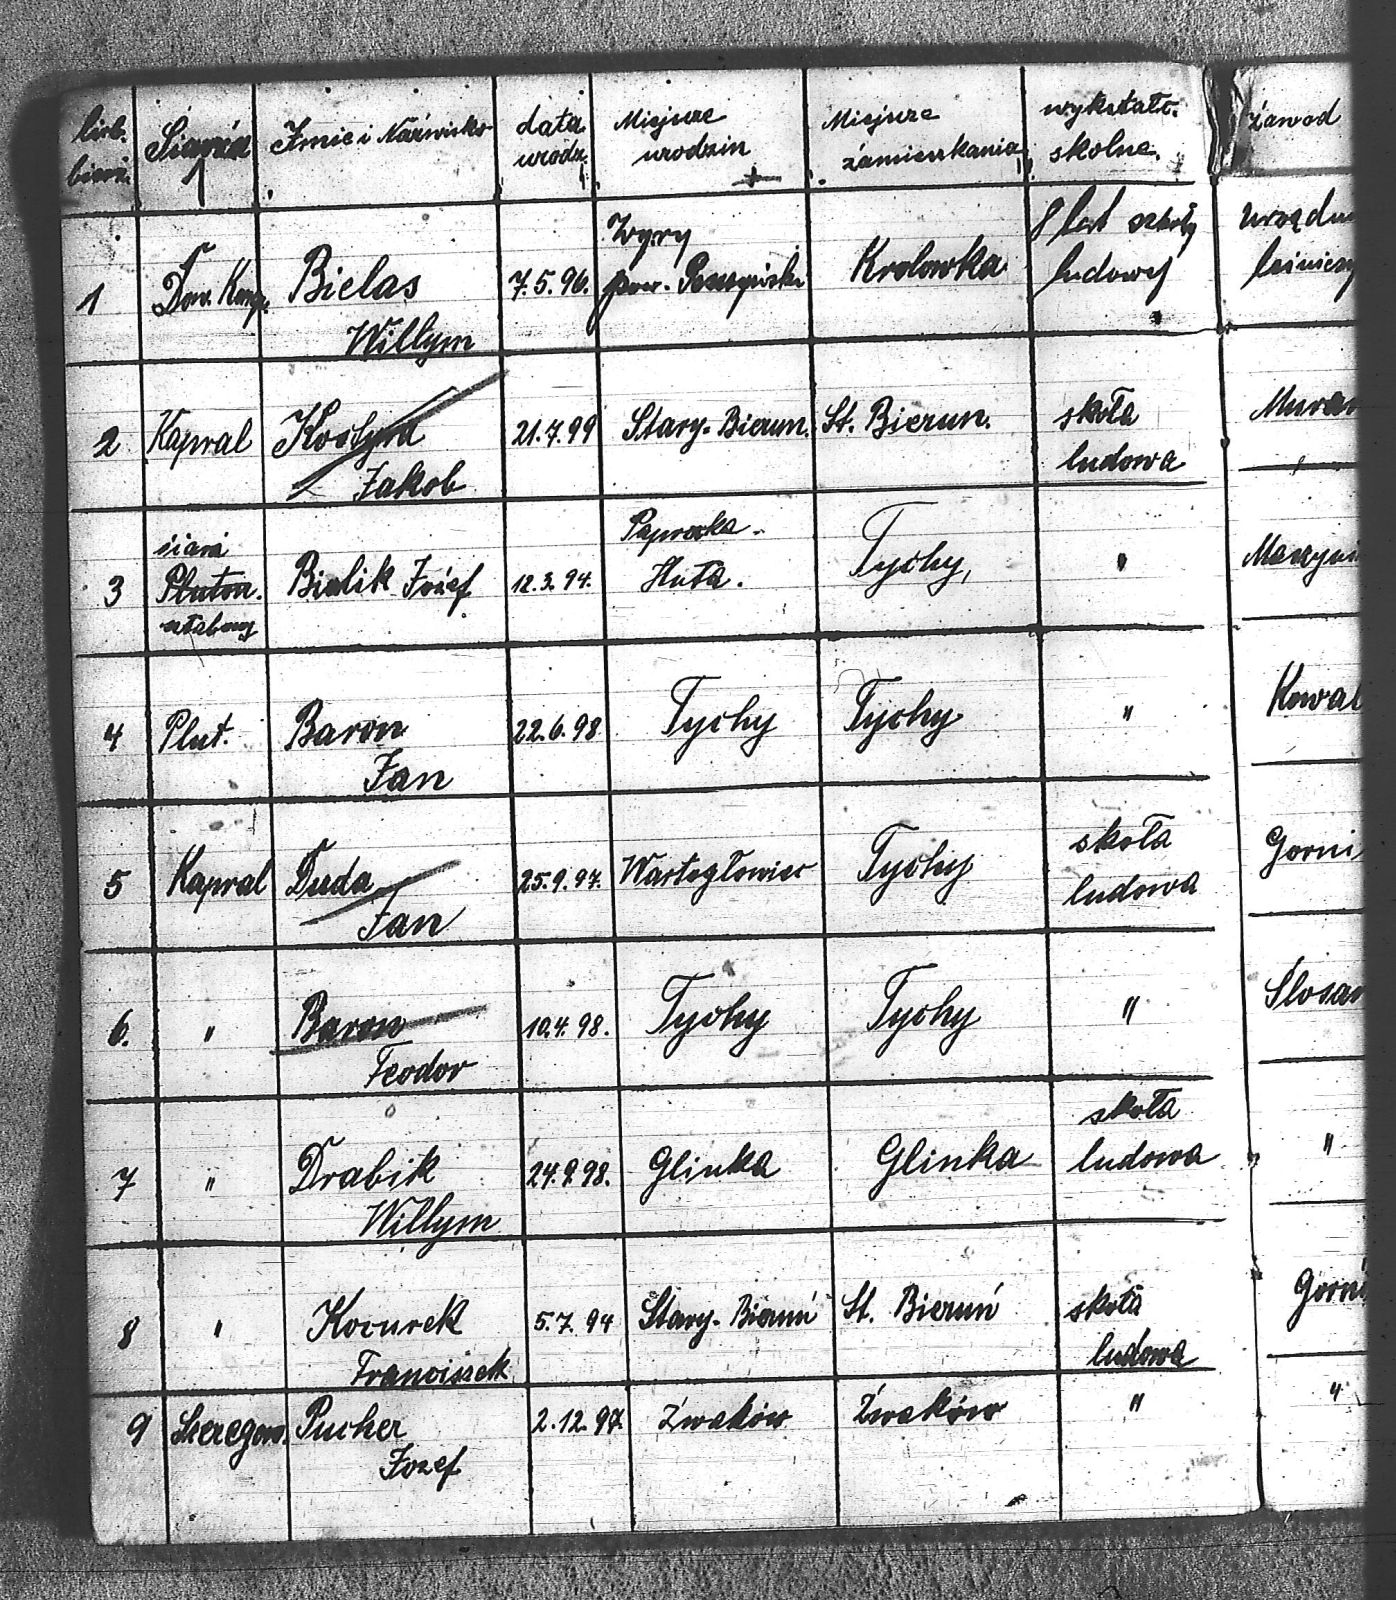 licb. bierz.
Siarża
Imie i Naźwisko
data urodz.
Miejsce urodzin
Miejsce źamieszkania
wykstałc. skolne.
źawod
1 Dow. Komp. Bielas Willym 7.5.96. Wyry pow. Pszczyński Krolowka 8 lat szkoły ludowej
2 Kapral Kostyra Jakob 21.7.99 Stary-Bierun. St. Bierun. skoła ludowa
3 siarż. Pluton. sztabowy Bialik Józef 12.3.94. Paprocka-Huta. Tychy, "
4 Plut. Baron Jan 22.6.98 Tychy Tychy " Kowal
5 Kapral Duda Jan 25.9.97. Wartogłowiec Tychy skoła ludowa Gorni
6. " Baron Teodor 10.4.98. Tychy Tychy " Slosar
7 " Drabik Willym 24.9.98. Glinka Glinka skoła ludowa "
8 " Kocurek Franciszek 5.7.94 Stary-Bieruń St. Bieruń skoła ludowa Gorni
9 Szeregow. Pucher Jozef 2.12.97. Źwaków Źwaków " "